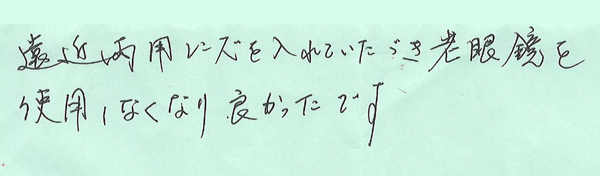 遠近両用レンズを入れていただき老眼鏡を
使用しなくなり良かったです